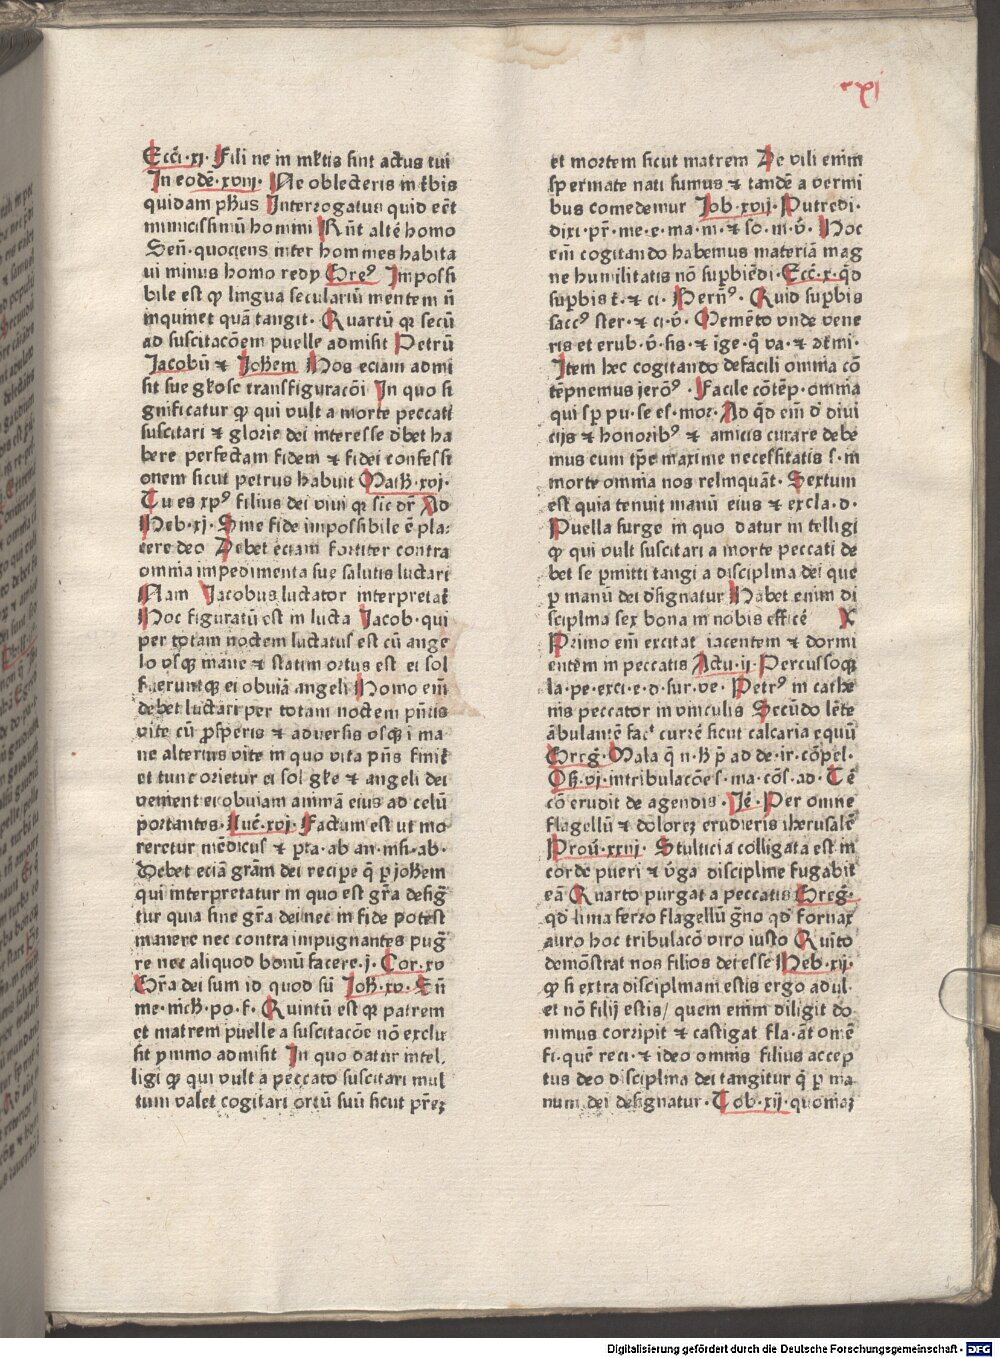 xxj
Eccͥ·xj· Fili ne in ml̄tis sint actus tui
In eodē·xviij· Ne oblecteris in t̄bis
quidam ph̄us Interrogatus quid eēt
inimicissimū homini Rn̄t alt̄e homo
Sen̄·quociens inter homines habita
ui minus homo redij Greꝰ Impossi
bile est qꝫ lingua seculariū mentem n̄
inquinet quā tangit· Quartū qꝫ secū
ad suscitacōem puelle admisit Petrū
Jacobū ⁊ Joh̄em Hos eciam admi
sit sue gl̄ose transfiguracōi In quo si
gnificatur qꝫ qui vult a morte peccati
suscitari ⁊ glorie dei interesse d̄bet ha
bere perfectam fidem ⁊ fidei confessi
onem sicut petrus habuit Math̄·xvj·
Tu es xp̄ꝰ filius dei viui qꝫ sic dr̄ Ad
Heb·xj· Sine fide impossibile ē pla:
cere deo Debet eciam fortiter contra
omnia impedimenta sue salutis luctari
Nam Jacobus luctator interpretat̄
Hoc figuratū est in lucta Jacob·qui
per totam noctem luctatus est cū ange
lo vsqꝫ mane ⁊ statim ortus est ei sol
fueruntqꝫ ei obuiā angeli Homo em̄
debet luctari per totam noctem pn̄tis
vite cū ꝓsperis ⁊ aduersis vsqꝫ i ma
ne alterius vite in quo vita pn̄s finit̄
et tunc orietur ei sol gl̄ie ⁊ angeli dei
venient ei obuiam animā eius ad celū
portantes·Luc̄·xvj· Factum est ut mo
reretur mēdicus ⁊ pta·ab an·insi·ab·
Debet eciā grām dei recipe q̄ ꝑ joh̄em
qui interpretatur in quo est gr̄a desiḡ
tur quia sine gr̄a dei nec in fide potest
manere nec contra impugnantes puḡ
re nec aliquod bonū facere·j·Cor·xv
Gr̄a dei sum id quod sū Joh̄·xv· Sn̄
me·nich̄·po·f· Quintū est qꝫ patrem
et matrem puelle a suscitacōe nō exclu
sit ymmo admisit In quo datur intel,
ligi qꝫ qui vult a peccato suscitari mul
tum valet cogitari ortū suū sicut pr̄eꝫ
et mortem sicut matrem De vili enim
spermate nati sumus ⁊ tandē a vermi
bus comedemur Job·xvij·Putredi·
dixi·pr̄·me·e·ma·m·⁊ so·m·v̄· Hoc
em̄ cogitando habemus materiā mag
ne humilitatis nō supbiēdi·Ecc̄·x·qd̄
supbis t̄·⁊ ci· Bern̄ꝰ· Quid supbis
saccꝰ ster·⁊ ci·v̄· Memēto vnde vene
ris et erub·v̄·sis·⁊ ige·qͦ va·⁊ ⁊t̄mi·
Item hec cogitando defacili omnia cō
tēpnemus jerōꝰ·Facile cōtēp·omnia
qui sꝑ pu·se es·mor·Ad qd̄ em̄ d̄ diui
cijs ⁊ honoribꝰ ⁊ amicis curare debe
mus cum tp̄e maxime necessitatis s·in
morte omnia nos relinquāt· Sextum
est quia tenuit manū eius ⁊ excla·d·
Puella surge in quo datur intelligi
qꝫ qui vult suscitari a morte peccati de
bet se ꝑmitti tangi a disciplina dei que
ꝑ manū dei d̄signatur Habet enim di
sciplina sex bona in nobis efficē X
Primo em̄ excitat iacentem ⁊ dormi
entēm in peccatis Actu·ij·Percussoqꝫ
la·pe·exci·e·d·sur·ve· Petrꝰ in cathe
nis peccator in vinculis Secūdo lēte
ābulantē fac̄ currē sicut calcaria equū
Greḡ·Mala q̄ n·h̄ p̄ ad de·ir·cōpel·
Os̄·vj·intribulacōe s·ma·cōs·ad·Tē
cō erudit de agendis·Je·Per omne
flagellū ⁊ doloreꝫ erudieris iherusalē
Prou·xxiij· Stulticia colligata est in
corde pueri ⁊ v̄ga discipline fugabit
eā Quarto purgat a peccatis Greḡ·
qd̄ lima ferro flagellū ḡno qd̄ fornax
auro hoc tribulacō viro iusto Quīto
demōstrat nos filios dei esse Heb·xij·
qꝫ si extra disciplinam estis ergo adul·
et nō filij estis/ quem enim diligit do
minus corripit ⁊ castigat fla·āt omē
fi·quē reci·⁊ ideo omnis filius accep
tus deo disciplina dei tangitur q̄ ꝑ ma
num dei designatur·Tob·xij·quoniaꝫ
Digitalisierung gefördert durch die Deutsche Forschungsgemeinschaft - DFG